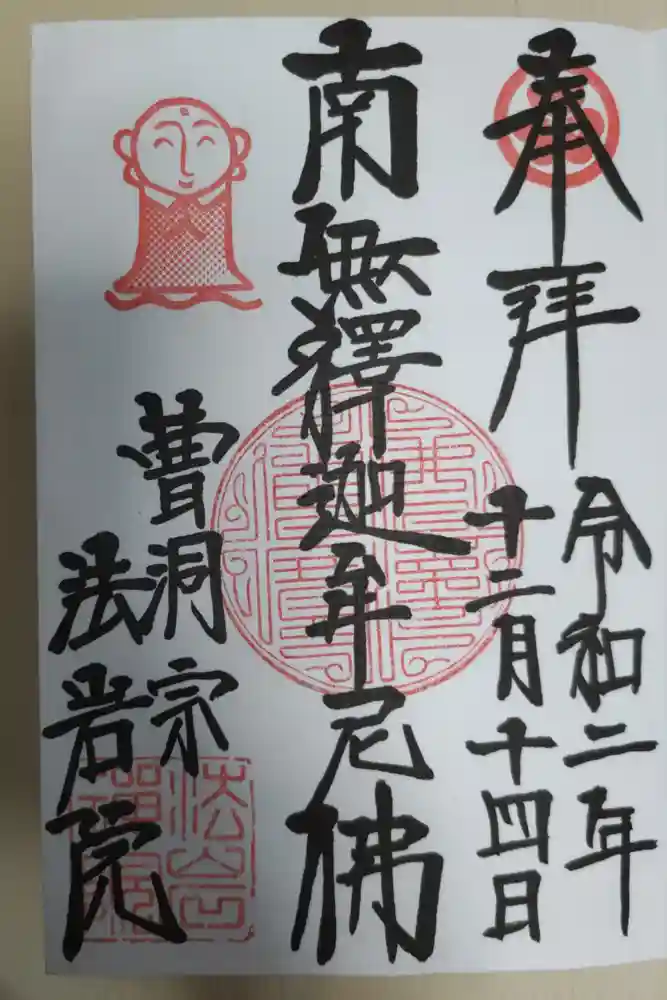 奉拝
令和二年
十二月十四日
南無釋迦牟尼佛
曹洞宗
法岩院